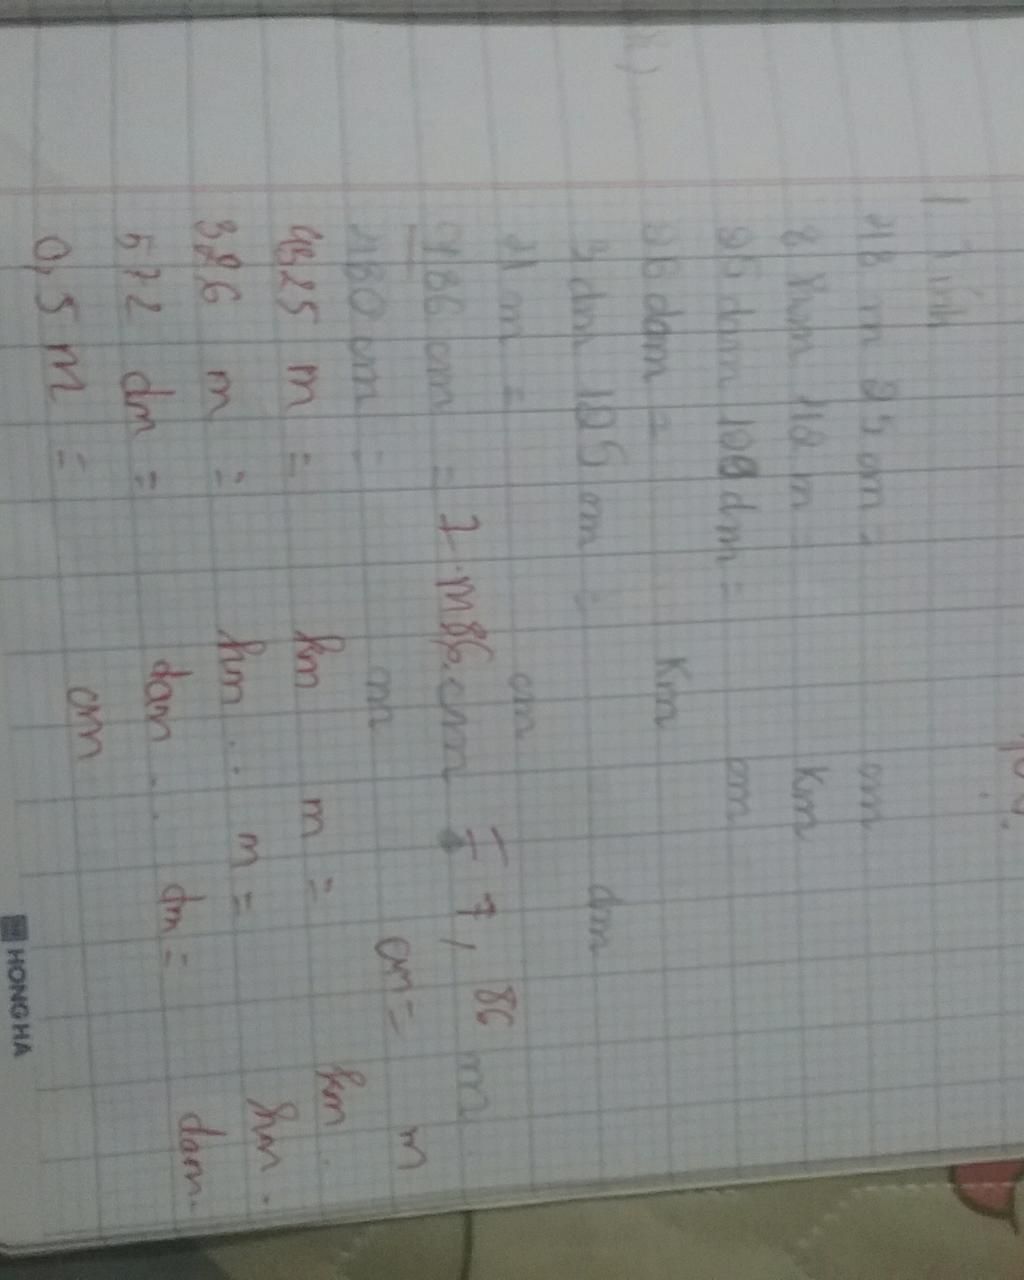 1 Tính
48 m 25 cm = cm
8 hm 12 m = Km
95 dam 100 dm = cm
96 dam = Km
3 dm 125 cm = dm
21 m = cm
786 cm = 7 m 86 cm = 7,86 m
480 cm = m cm = m
4825 m = km m = km
3826 m = hm m = hm
572 dm = dam dm = dam
0,5 m = cm
HONG HA